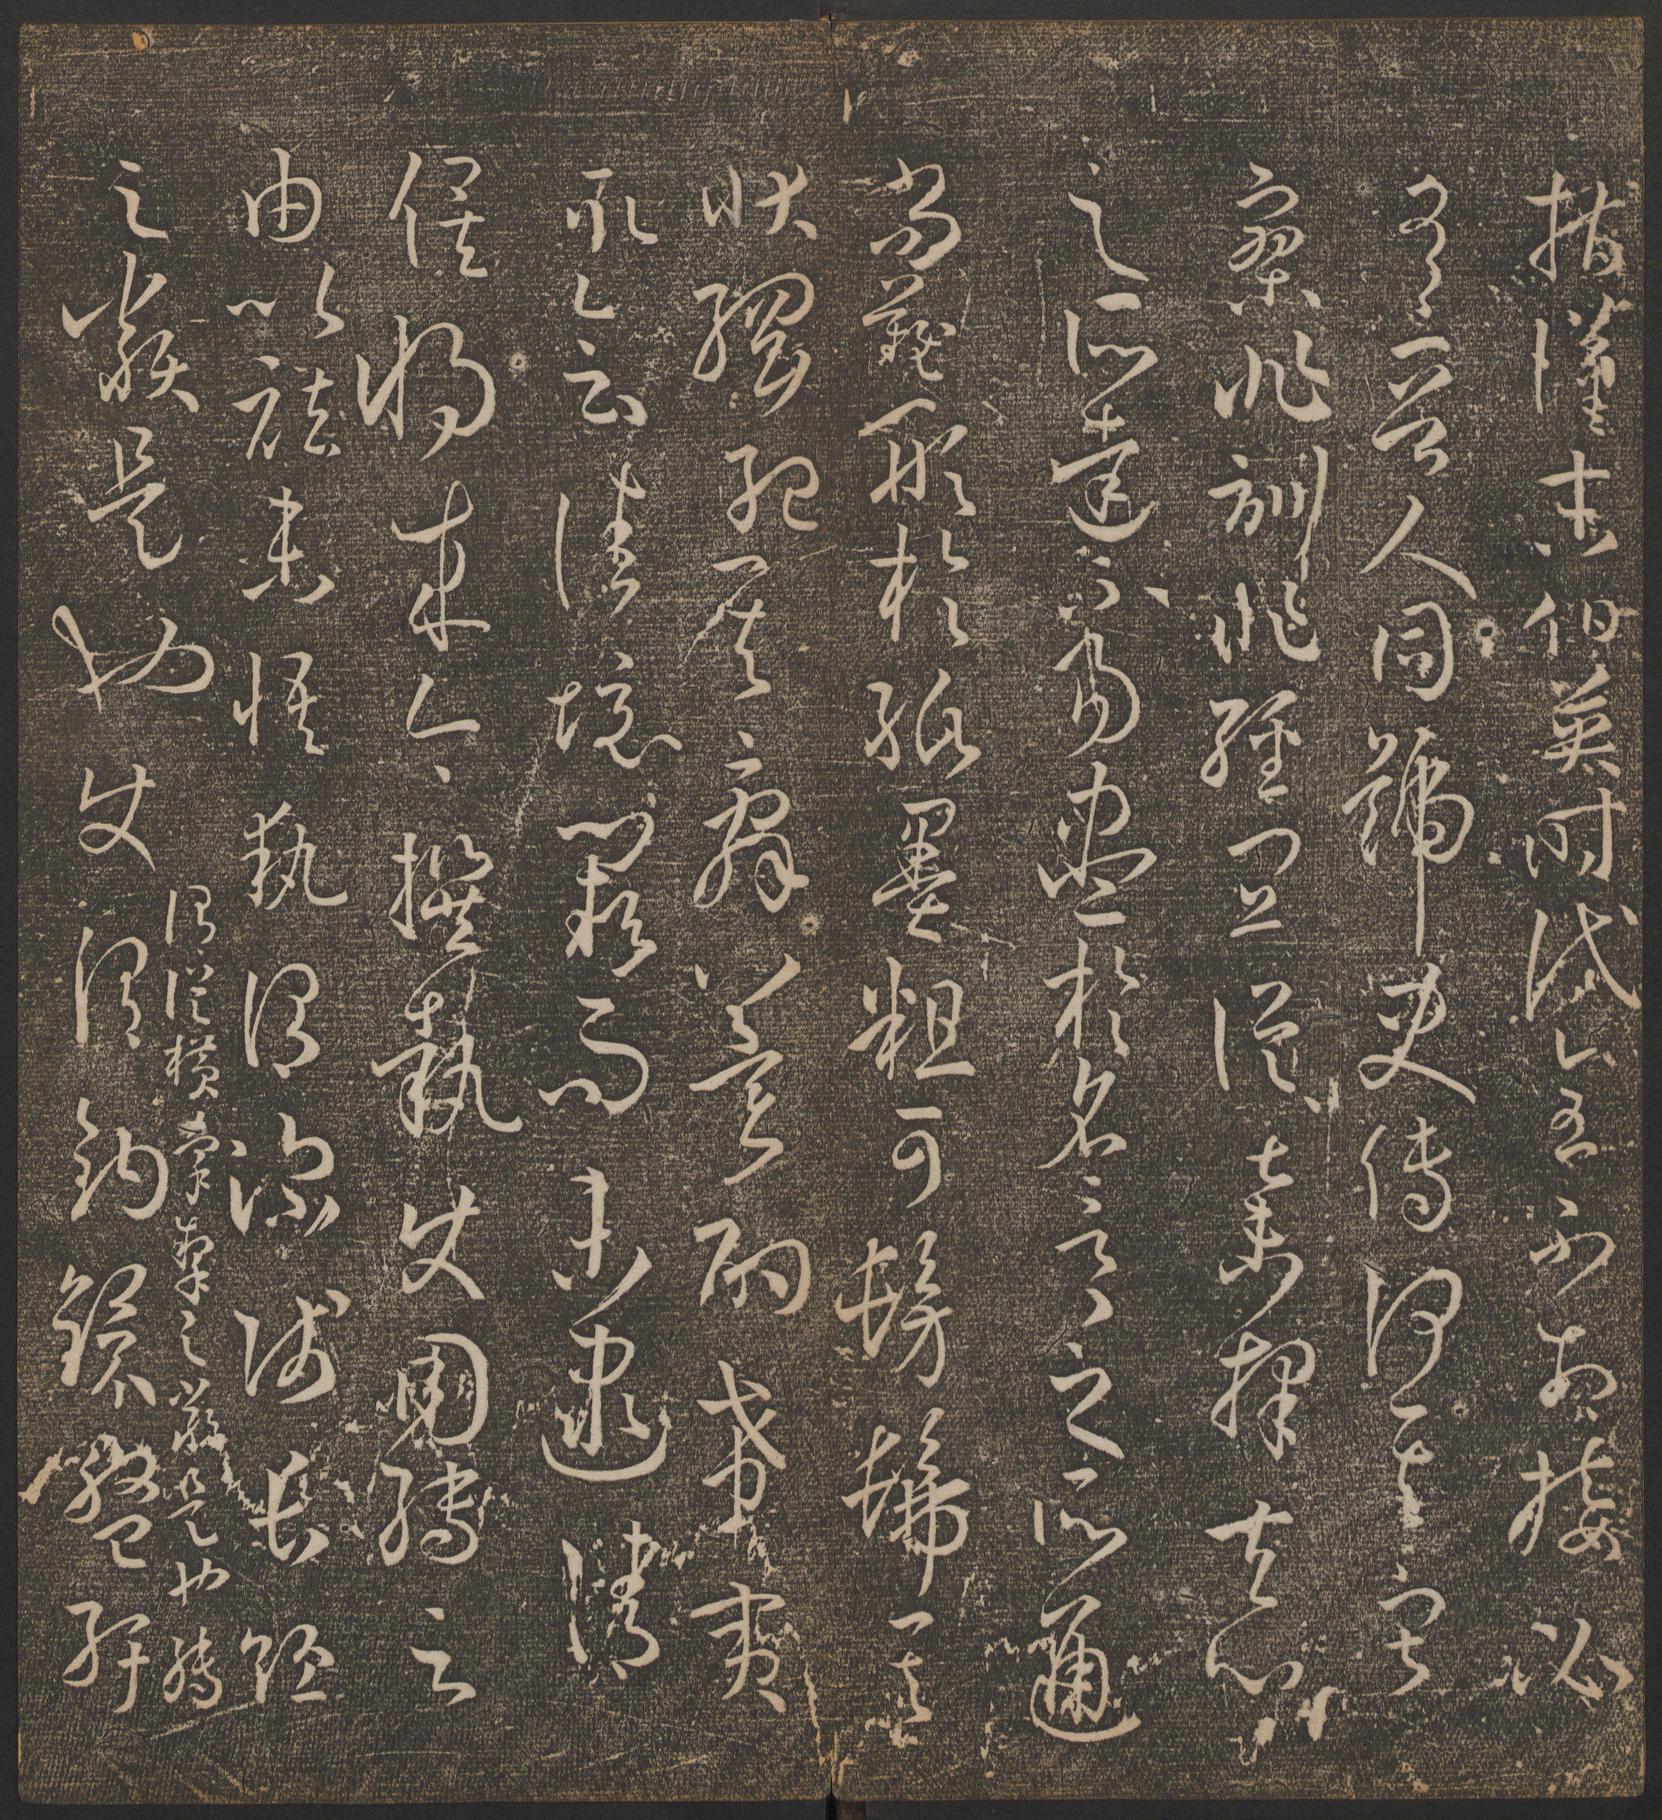 指漢末伯英時代全不相接必
有晉人同號史傳何其寂
寥非訓非經宜從棄擇夫心
之所達不易盡於名言言之所通
尚難形於紙墨粗可髣髴其
狀綱紀其辭冀酌希夷
取會佳境闕而末逮請
俟將來今撰執使用轉之
由以祛未悟執謂深淺長短
之類是也使謂縱橫牽掣之類是也轉謂鉤鐶盤紆